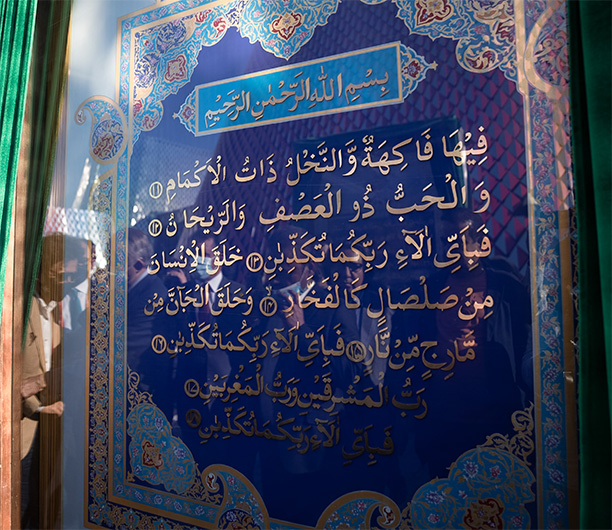 بِسْمِ اللهِ الرَّحْمٰنِ الرَّحِيْمِ
فِيْهَا فَاكِهَةٌ وَّالنَّخْلُ ذَاتُ الْاَكْمَامِ ۝۱۱
وَالْحَبُّ ذُو الْعَصْفِ وَالرَّيْحَانُ ۝۱۲
فَبِاَيِّ اٰلَآءِ رَبِّكُمَا تُكَذِّبٰنِ ۝۱۳ خَلَقَ الْاِنْسَانَ
مِنْ صَلْصَالٍ كَالْفَخَّارِ ۝۱۴ وَخَلَقَ الْجَآنَّ مِنْ
مَّارِجٍ مِّنْ نَّارٍ ۝۱۵ فَبِاَيِّ اٰلَآءِ رَبِّكُمَا تُكَذِّبٰنِ ۝۱۶
رَبُّ الْمَشْرِقَيْنِ وَرَبُّ الْمَغْرِبَيْنِ ۝۱۷
فَبِاَيِّ اٰلَآءِ رَبِّكُمَا تُكَذِّبٰنِ ۝۱۸